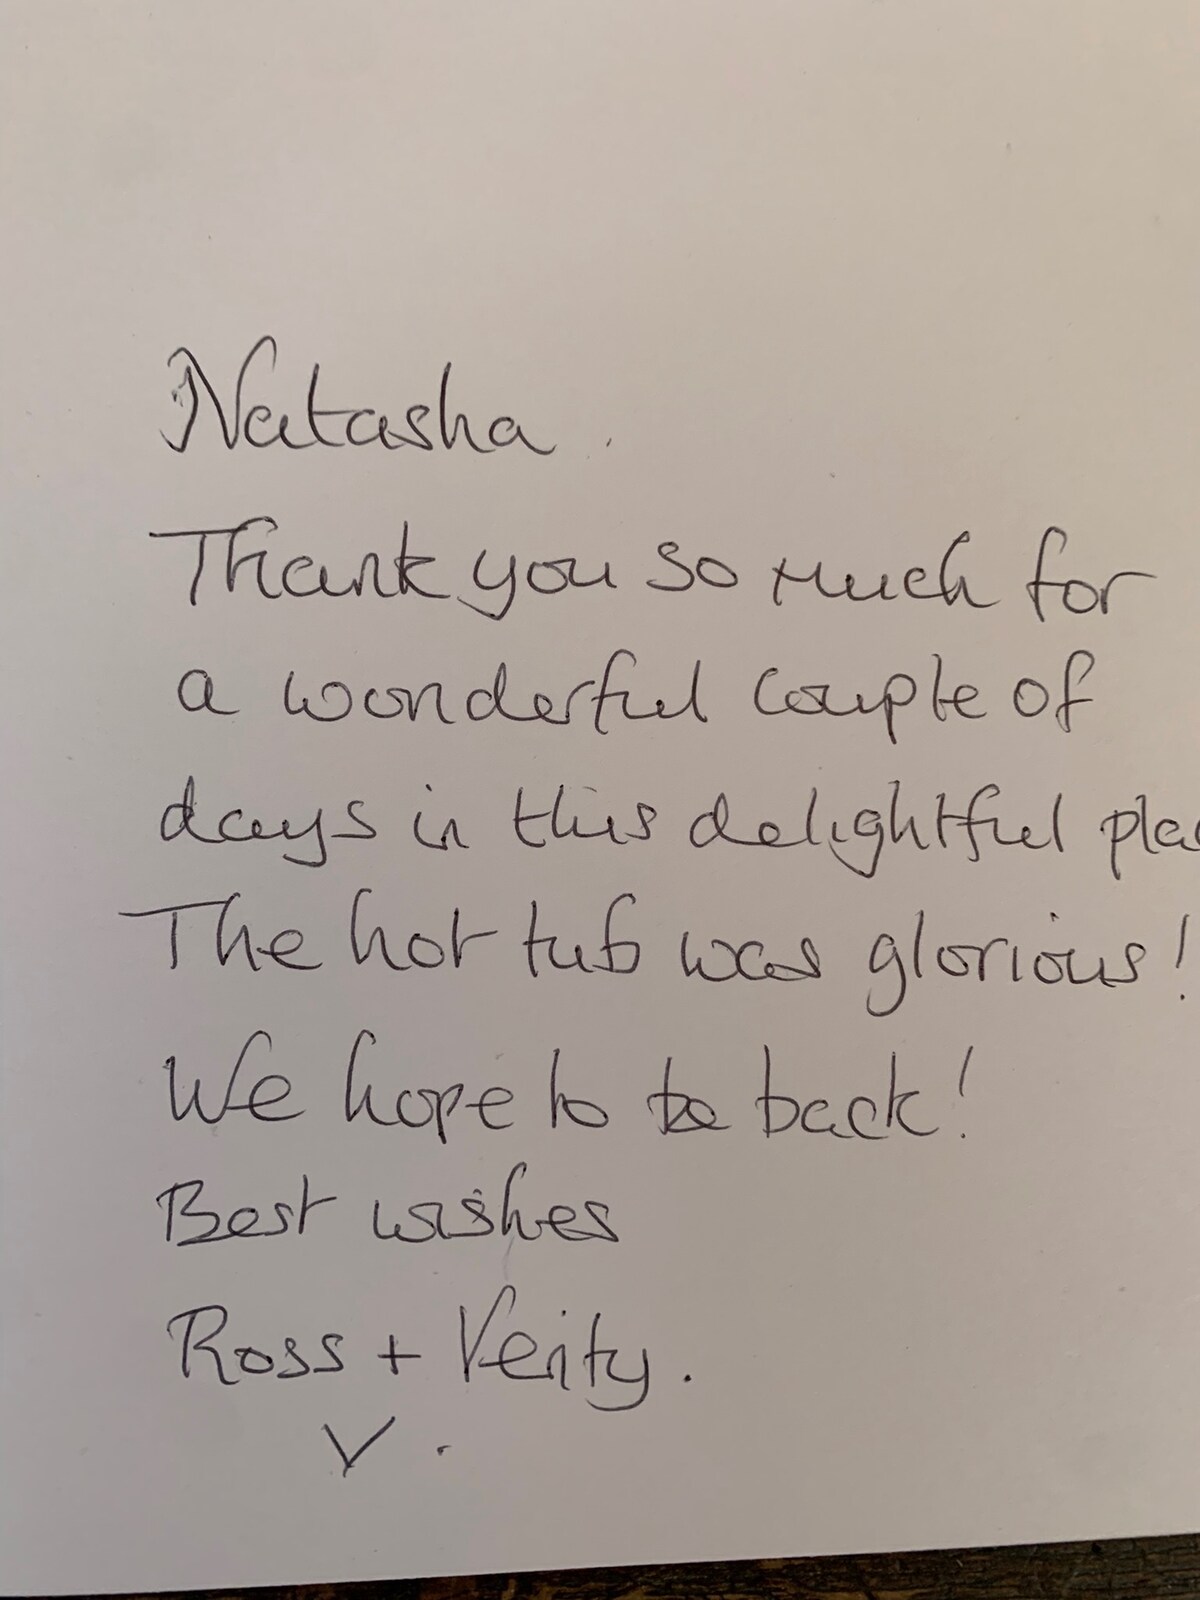 Natasha.
Thank you so much for
a wonderful couple of
days in this delightful plac
The hot tub was glorious!
We hope to be back!
Best wishes
Ross + Verity.